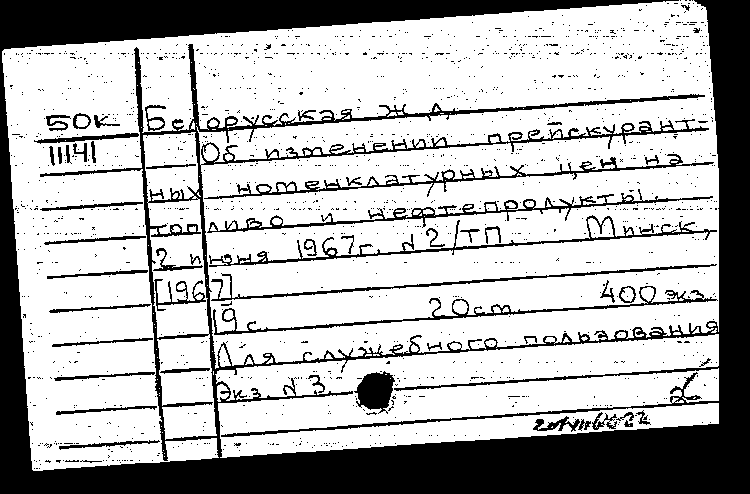 БОК Белорусская ж. д.
11141 Об изменении прейскурант-
ных номенклатурных цен на
топливо и нефтепродукты.
2 июня 1967г. N2/ТП. Минск,
[1967].
19 с. 20см. 400 экз.
Для служебного пользования
Экз. N 3.
2